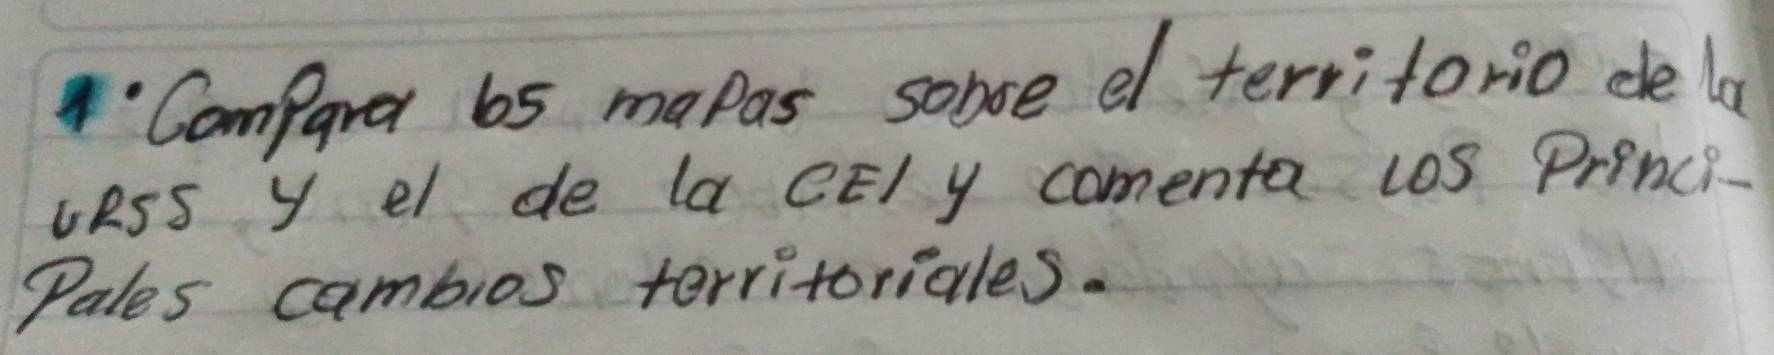 1. Compara los mapas sobre el territorio de la
URSS y el de la CEI y comenta los Princi-
Pales cambios territoriales.